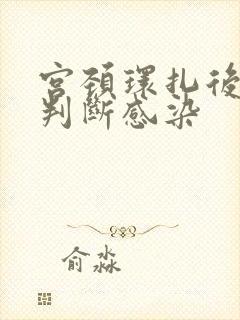 宮頚環扎後
判斷感染
俞淼